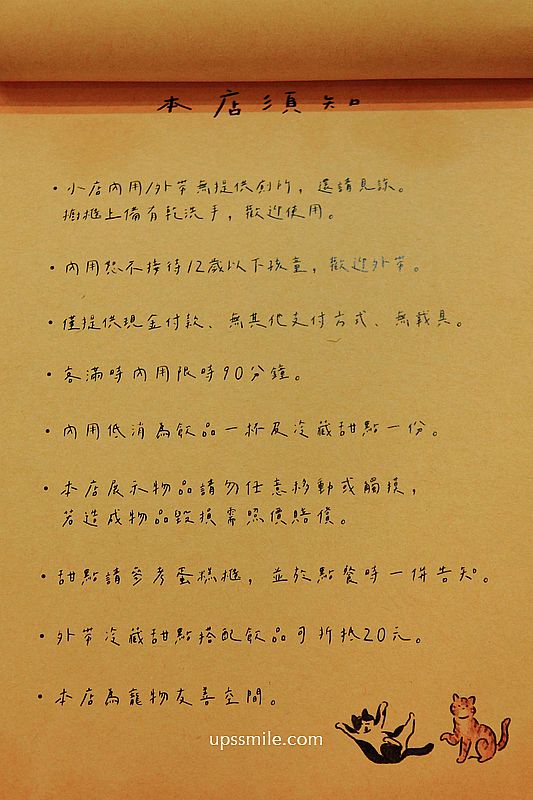 本店須知
・小店內用/外帶無提供廁所，還請見諒。
櫥櫃上備有乾洗手，歡迎使用。
・內用恕不接待12歲以下孩童，歡迎外帶。
・僅提供現金付款、無其他支付方式、無載具。
・客滿時內用限時90分鐘。
・內用低消為飲品一杯及冷藏甜點一份。
・本店展示物品請勿任意移動或觸摸，
若造成物品毀損需照價賠償。
・甜點請參考蛋糕櫃，並於點餐時一併告知。
・外帶冷藏甜點搭配飲品可折抵20元。
・本店為寵物友善空間。
upssmile.com